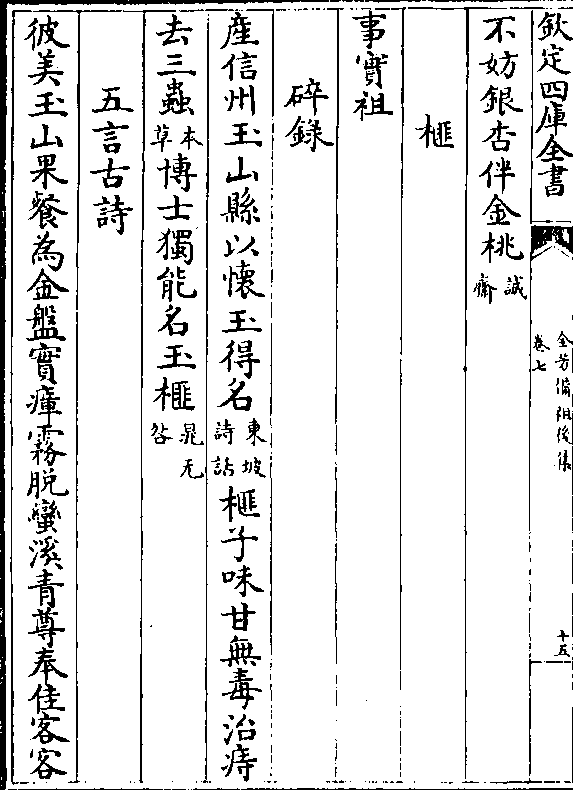 欽定四庫全書
全芳備祖後集
卷七
十五
不妨銀杏伴金桃誠齋
榧
事實祖
碎錄
産信州玉山縣以懷玉得名東坡詩詁榧子味甘無毒治痔
去三蟲本草博士獨能名玉榧晁无咎
五言古詩
彼美玉山果餐為金盤實瘴霧脱蠻溪青尊奉佳客客